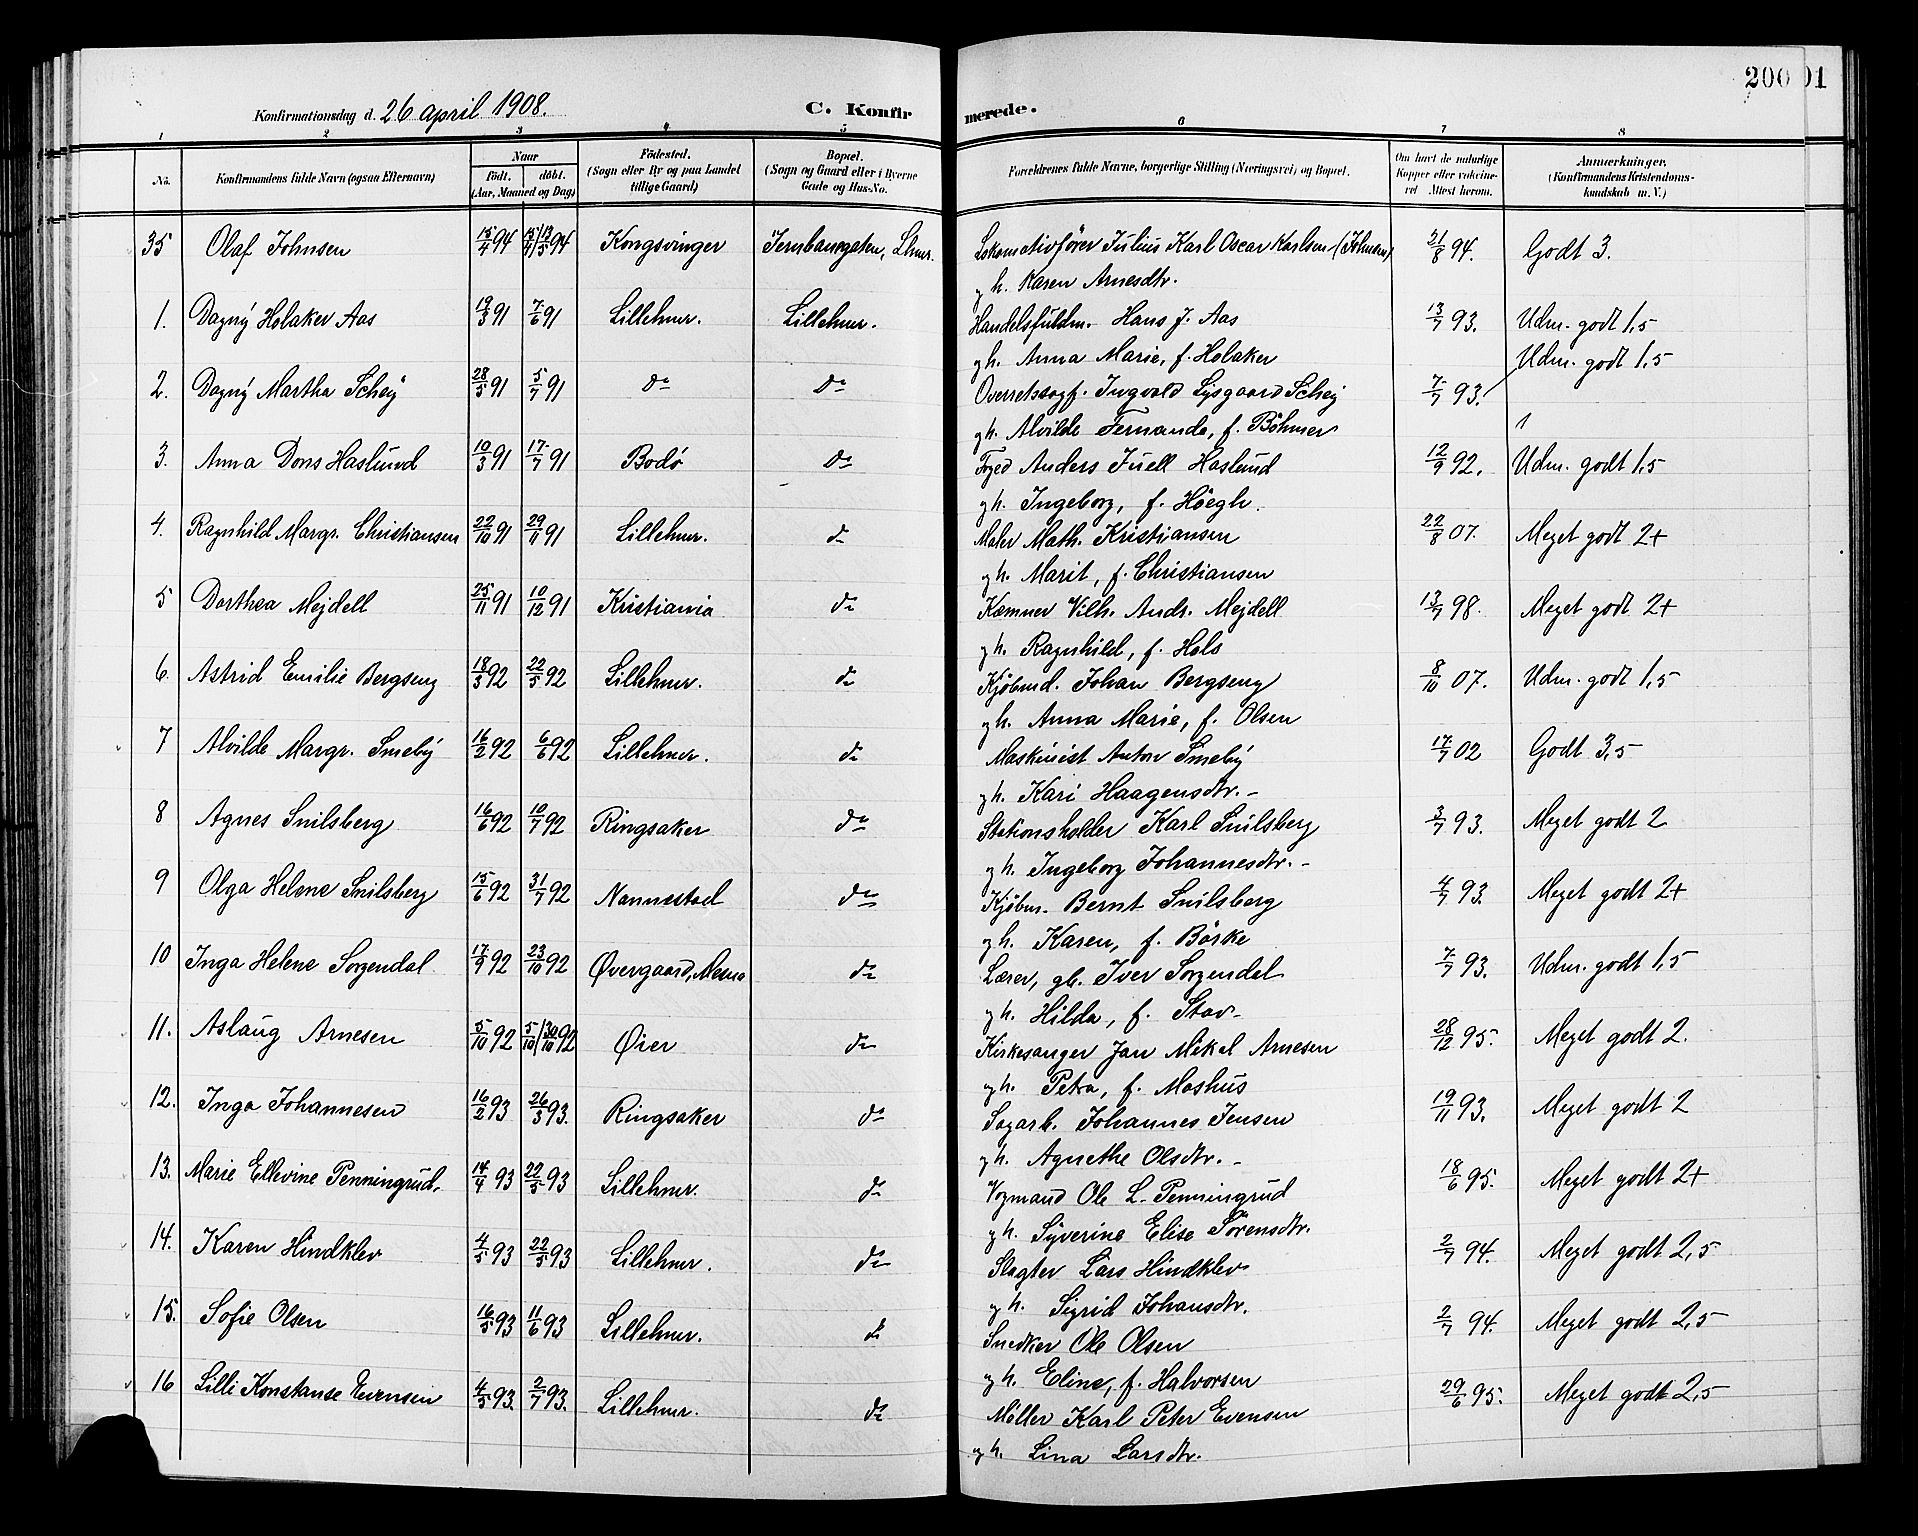 200 01
Konfirmationsdag d. 26 april 1908. C. Konfir merede.
1 2 3 4 5 6 7 8
No. Konfirmandens fulde Navn (ogsaa Efternavn) Naar født. døbt. (Aar, Maaned og Dag) Födested. (Sogn eller By og paa Landet tillige Gaard) Bopæl. (Sogn og Gaard eller i Byerne Gade og Hus-No. Forældrenes fulde Navne, borgerlige Stilling (Næringsvei) og Bopæl. Om havt de naturlige Kopper eller vakcineret Attest herom. Anmærkninger. (Konfirmandens Kristendomskundskab m. V.)
35 Olaf Johnsen 15/4 94 15/4 | 13/5 94 Kongsvinger Jernbanegaten, Lhmr. Lokomotivfører Julius Karl Oscar Karlsen (Johnsen) 21/8 94. Godt 3.
og h. Karen Arnesdtr.
1. Dagny Holaker Aas 19/3 91 7/6 91 Lillehmr. Lillehmr. Handelsfuldm. Hans J. Aas 13/7 93. Udm. godt 1,5
og h. Anna Marie, f. Holaker
2. Dagny Martha Schey 28/5 91 5/7 91 do do Overretssagf. Ingvald Lysgaard Schey 7/7 93. Udm. godt 1,5
og h. Alvilde Fernanda, f. Böhmer
3. Anna Dons Haslund 10/3 91 17/7 91 Bodö do Foged Anders Juell Haslund 12/9 92. Udm. godt 1,5
og h. Ingeborg, f. Höegh.
4. Ragnhild Margr. Christiansen 22/10 91 29/11 91 Lillehmr. do Maler Math. Kristiansen 22/8 07. Meget godt 2+
og h. Marit, f. Christiansen
5 Dorthea Mejdell 25/11 91 10/12 91 Kristiania do Kæmner Vilh. Andr. Mejdell 13/7 98. Meget godt 2+
og h. Ragnhild, f. Hols
6. Astrid Emilie Bergseng 18/3 92 22/5 92 Lillehmr. do Kjöbmd. Johan Bergseng 8/10 07. Udm. godt 1,5
og h. Anna Marie, f. Olsen
7 Alvilde Margr. Smeby 16/2 92 6/6 92 Lillehmr. do Maskinist Anton Smeby 17/7 02 Godt 3,5
og h. Kari Haagensdtr.-
8 Agnes Snilsberg 16/6 92 10/7 92 Ringsaker do Stationsholder Karl Snilsberg 3/7 93. Meget godt 2
og h. Ingeborg Johannesdtr.-
9 Olga Helene Snilsberg 15/6 92 31/7 92 Nannestad do Kjöbm. Bernt Snilsberg 4/7 93. Meget godt 2+
og h. Karen, f. Börke
10 Inga Helene Sorgendal 17/9 92 23/10 92 Øvergaard, Mesna do Lærer, gb. Iver Sorgendal 7/7 93. Udm. godt 1,5
og h. Hilda, f. Stav-
11. Aslaug Arnesen 5/10 92 5/10 | 30/10 92 Øier do Kirkesanger Jan Mikal Arnesen 28/12 95. Meget godt 2.
og h. Petra, f. Moshus
12. Inga Johannesen 16/2 93 26/3 93. Ringsaker do Sagarb. Johannes Jensen 19/11 93. Meget godt 2
og h. Agnethe Olsdtr.-
13. Marie Ellevine Penningrud. 14/4 93 22/5 93 Lillehmr. do Vogmand Ole L. Penningrud 18/6 95. Meget godt 2+
og h. Syverine Elise Sörensdtr.
14. Karen Hindklev 4/5 93 22/5 93 Lillehmr. do Slagter Lars Hindklev 2/7 94. Meget godt 2,5
og h. Sigrid Johansdtr.
15. Sofie Olsen 16/5 93 11/6 93 Lillehmr. do Snedker Ole Olsen 2/7 94. Meget godt 2,5
og h. Eline, f. Halvorsen
16 Lilli Konstanse Evensen 4/5 93. 2/7 93. Lillehmr. do Möller Karl Peter Evensen 29/6 95. Meget godt 2,5
og h. Lina Larsdtr.